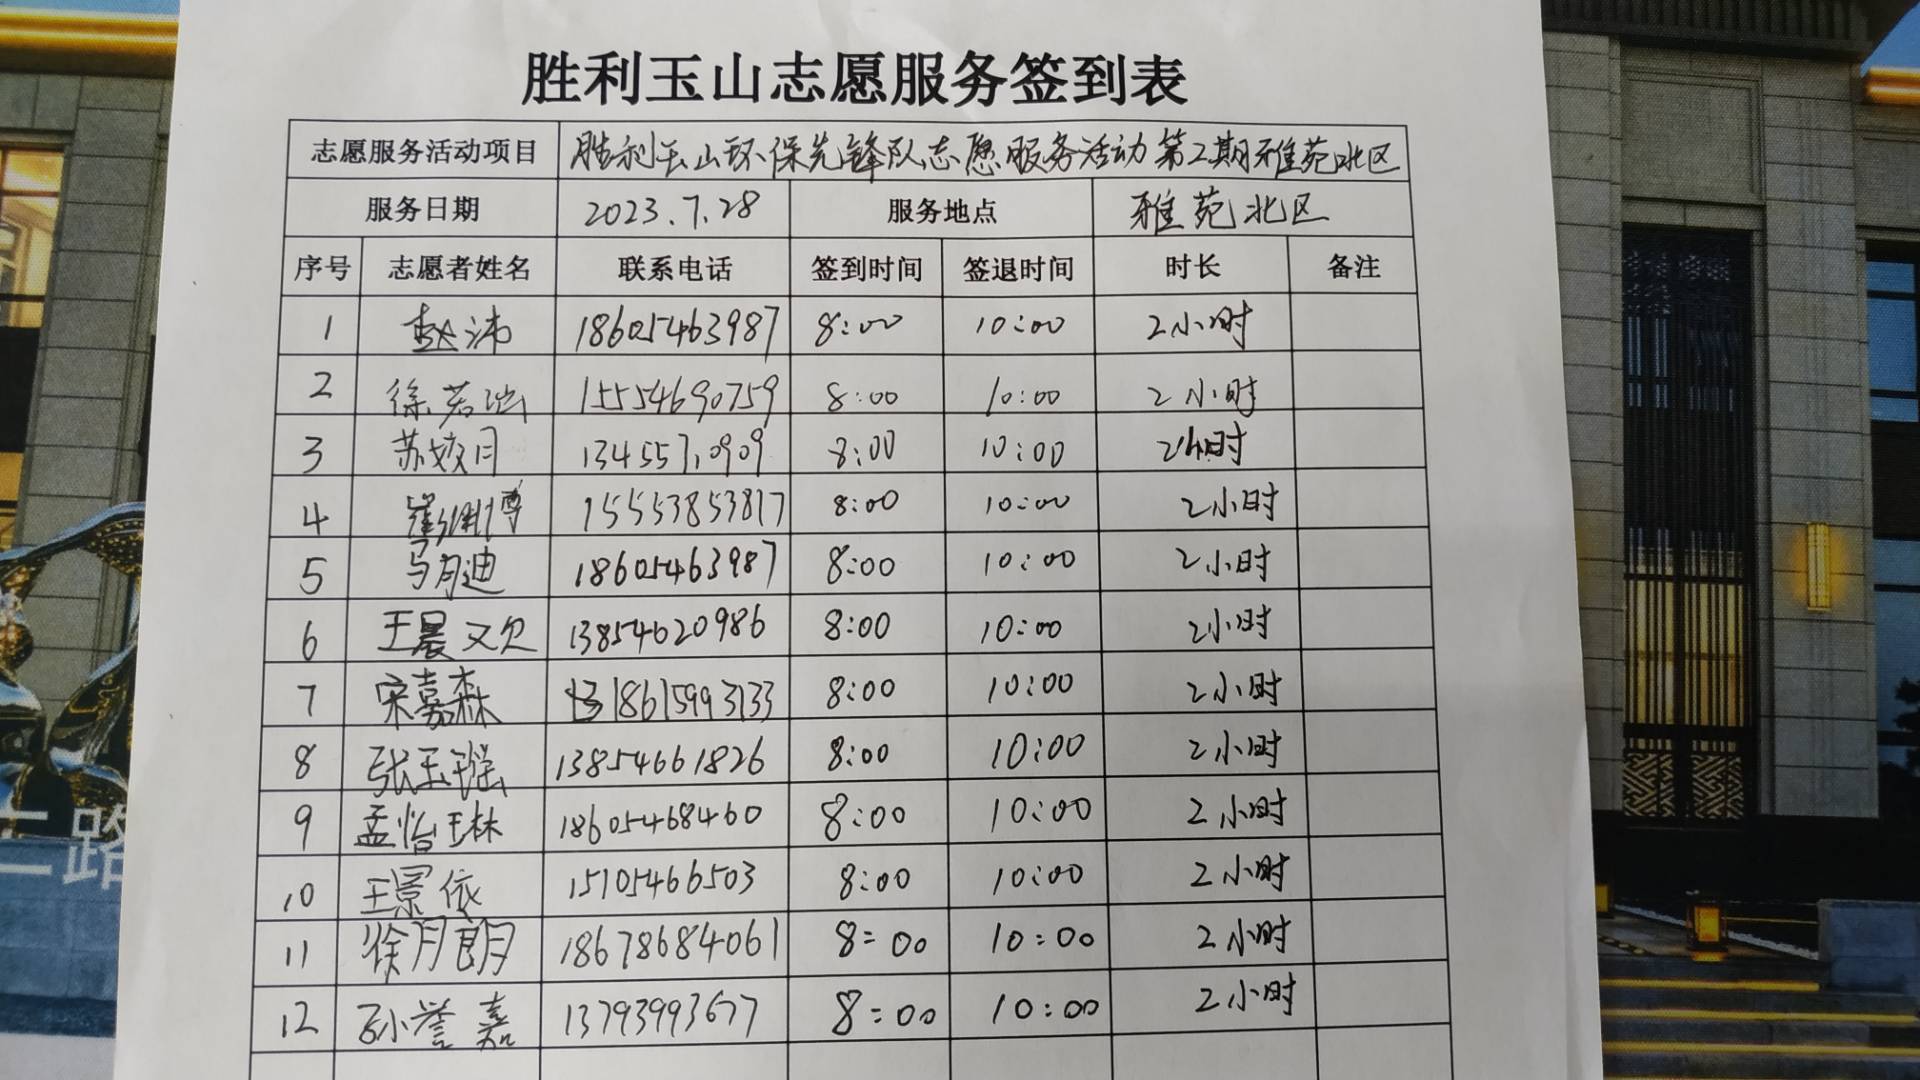 胜利玉山志愿服务签到表
志愿服务活动项目 胜利玉山环保先锋队志愿服务活动第2期雅苑北区
服务日期 2023.7.28 服务地点 雅苑北区
序号 志愿者姓名 联系电话 签到时间 签退时间 时长 备注
1 赵沛 18605463987 8:00 10:00 2小时
2 徐若 15554690759 8:00 10:00 2小时
3 苏姣月 13455710909 8:00 10:00 2小时
4 博 15553853817 8:00 10:00 2小时
5 马月迪 18605463987 8:00 10:00 2小时
6 王晨又欠 13854620986 8:00 10:00 2小时
7 宋嘉森 18615993133 8:00 10:00 2小时
8 张玉瑶 13854661826 8:00 10:00 2小时
9 孟怡琳 18605468460 8:00 10:00 2小时
10 王景依 15105466503 8:00 10:00 2小时
11 徐月朗 18678684061 8:00 10:00 2小时
12 孙誉嘉 13793993677 8:00 10:00 2小时
二路